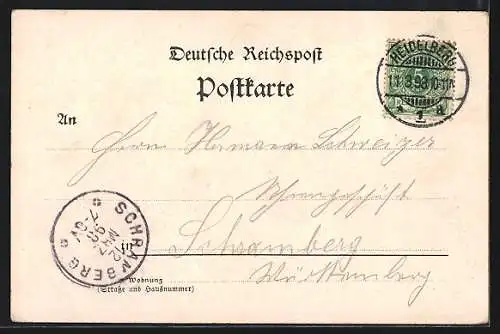 Deutsche Reichspost
Postkarte
HEIDELBERG
11.3.98.10-11N.
* 1 a
An
Herrn Hermann Schweizer
Uhrengeschäft
in Schramberg
Württemberg
SCHRAMBERG
12
MRZ
98
7-8V
Wohnung
(Straße und Hausnummer)